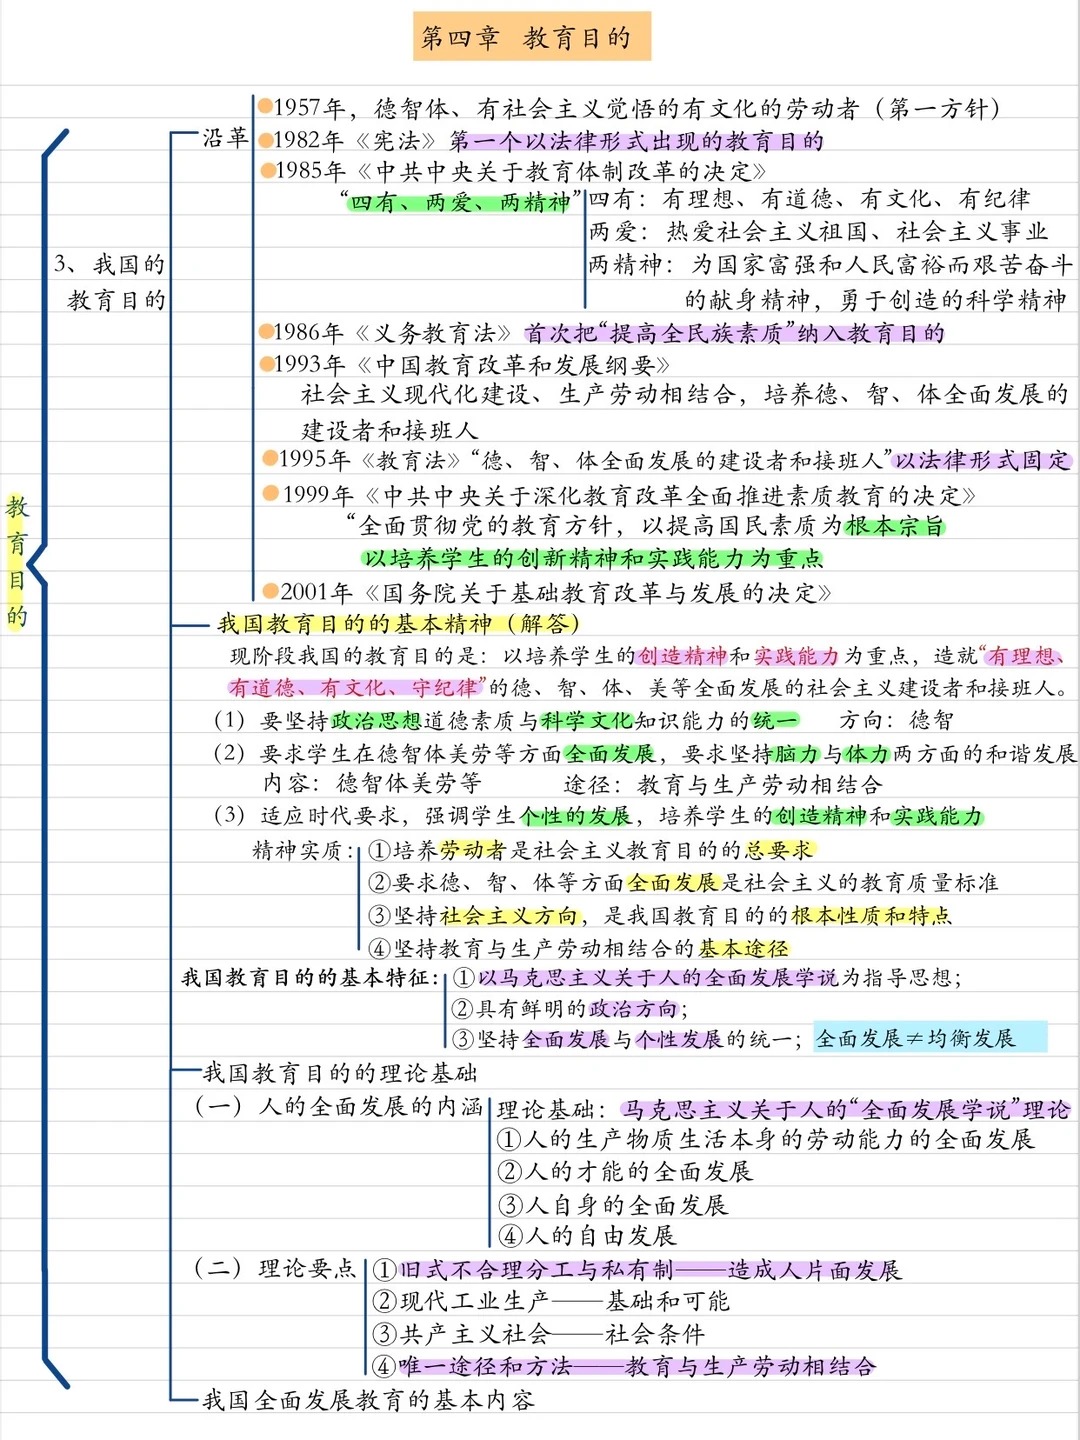 第四章 教育目的
教育目的
3、我国的
教育目的
沿革
1957年，德智体、有社会主义觉悟的有文化的劳动者（第一方针）
1982年《宪法》第一个以法律形式出现的教育目的
1985年《中共中央关于教育体制改革的决定》
“四有、两爱、两精神”
四有：有理想、有道德、有文化、有纪律
两爱：热爱社会主义祖国、社会主义事业
两精神：为国家富强和人民富裕而艰苦奋斗
的献身精神，勇于创造的科学精神
1986年《义务教育法》首次把“提高全民族素质”纳入教育目的
1993年《中国教育改革和发展纲要》
社会主义现代化建设、生产劳动相结合，培养德、智、体全面发展的
建设者和接班人
1995年《教育法》“德、智、体全面发展的建设者和接班人”以法律形式固定
1999年《中共中央关于深化教育改革全面推进素质教育的决定》
“全面贯彻党的教育方针，以提高国民素质为根本宗旨
以培养学生的创新精神和实践能力为重点
2001年《国务院关于基础教育改革与发展的决定》
我国教育目的的基本精神（解答）
现阶段我国的教育目的是：以培养学生的创造精神和实践能力为重点，造就“有理想、
有道德、有文化、守纪律”的德、智、体、美等全面发展的社会主义建设者和接班人。
（1）要坚持政治思想道德素质与科学文化知识能力的统一 方向：德智
（2）要求学生在德智体美劳等方面全面发展，要求坚持脑力与体力两方面的和谐发展
内容：德智体美劳等 途径：教育与生产劳动相结合
（3）适应时代要求，强调学生个性的发展，培养学生的创造精神和实践能力
精神实质：①培养劳动者是社会主义教育目的的总要求
②要求德、智、体等方面全面发展是社会主义的教育质量标准
③坚持社会主义方向，是我国教育目的的根本性质和特点
④坚持教育与生产劳动相结合的基本途径
我国教育目的的基本特征：①以马克思主义关于人的全面发展学说为指导思想；
②具有鲜明的政治方向；
③坚持全面发展与个性发展的统一；全面发展≠均衡发展
我国教育目的的理论基础
（一）人的全面发展的内涵
理论基础：马克思主义关于人的“全面发展学说”理论
①人的生产物质生活本身的劳动能力的全面发展
②人的才能的全面发展
③人自身的全面发展
④人的自由发展
（二）理论要点
①旧式不合理分工与私有制——造成人片面发展
②现代工业生产——基础和可能
③共产主义社会——社会条件
④唯一途径和方法——教育与生产劳动相结合
我国全面发展教育的基本内容